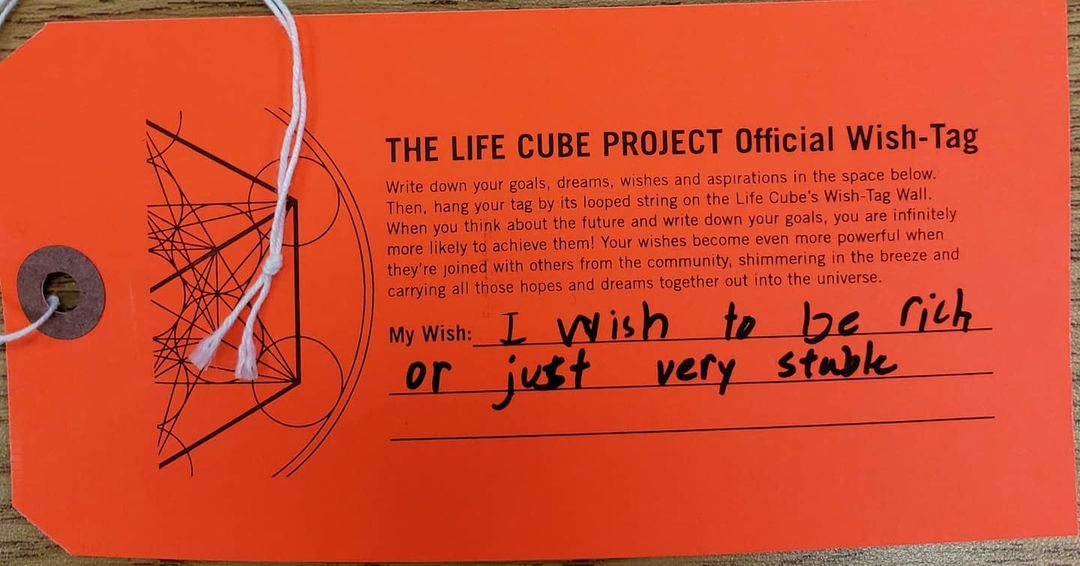 THE LIFE CUBE PROJECT Official Wish-Tag
Write down your goals, dreams, wishes and aspirations in the space below.
Then, hang your tag by its looped string on the Life Cube's Wish-Tag Wall.
When you think about the future and write down your goals, you are infinitely
more likely to achieve them! Your wishes become even more powerful when
they're joined with others from the community, shimmering in the breeze and
carrying all those hopes and dreams together out into the universe.
My Wish: I wish to be rich
or just very stable